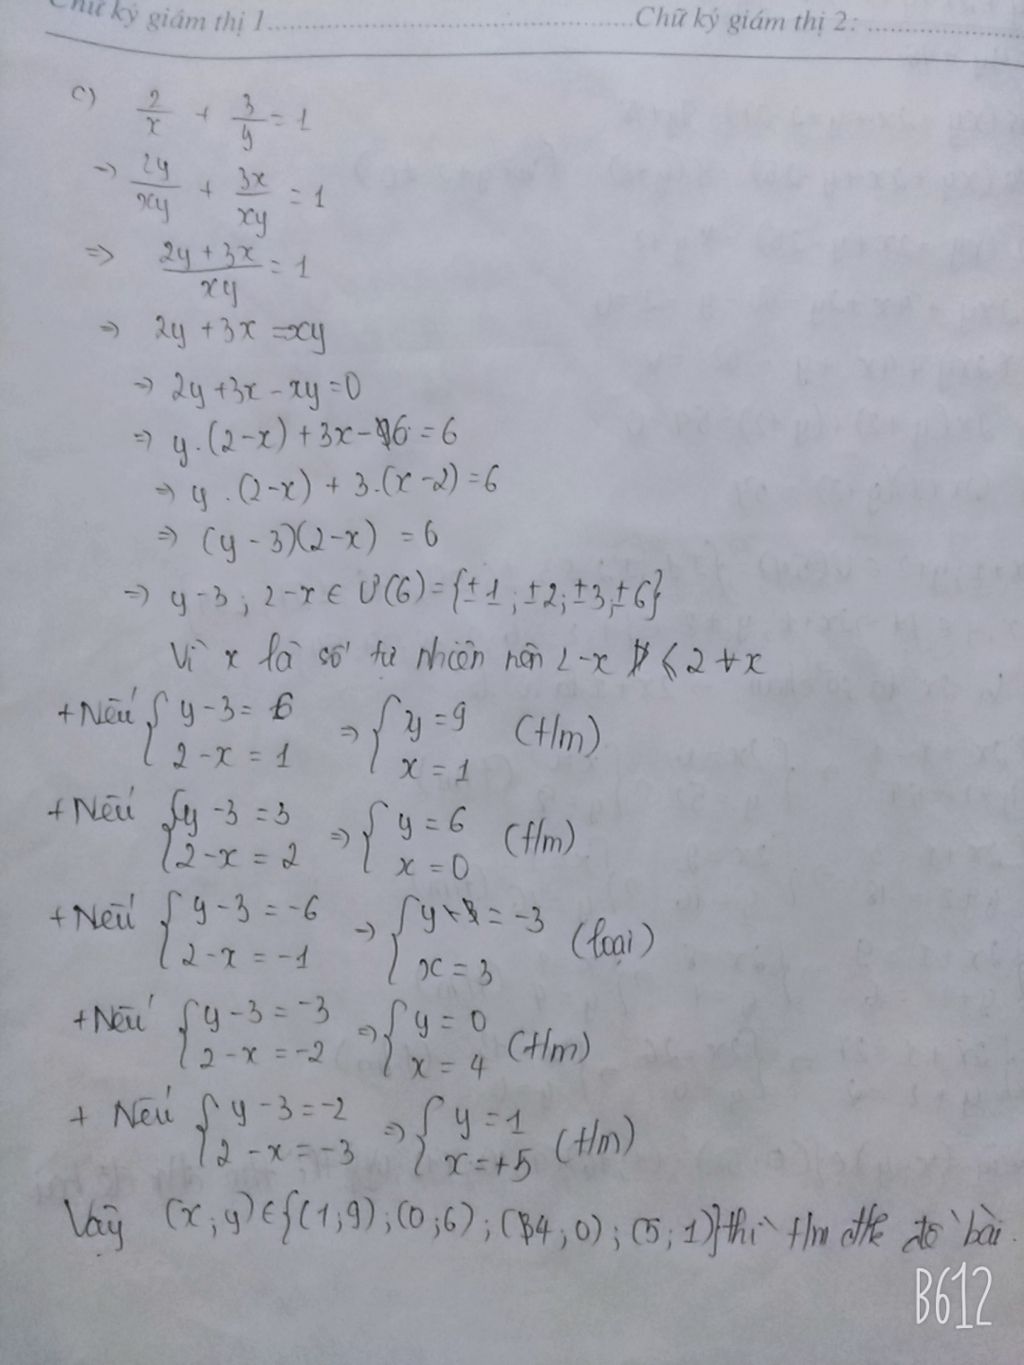 Chữ ký giám thị 1.................................................Chữ ký giám thị 2: ........................
c) 2/x + 3/y = 1
=> 2y/xy + 3x/xy = 1
=> (2y + 3x)/xy = 1
=> 2y + 3x = xy
=> 2y + 3x - xy = 0
=> y.(2-x) + 3x - 6 = 6
=> y.(2-x) + 3.(x-2) = 6
=> (y-3)(2-x) = 6
=> y-3; 2-x ∈ Ư(6) = {±1; ±2; ±3; ±6}
Vì x là số tự nhiên nên 2-x ≤ 2 ∀x
+ Nếu { y-3 = 6 ; 2-x = 1 => { y = 9 ; x = 1 (t/m)
+ Nếu { y-3 = 3 ; 2-x = 2 => { y = 6 ; x = 0 (t/m)
+ Nếu { y-3 = -6 ; 2-x = -1 => { y = -3 ; x = 3 (loại)
+ Nếu { y-3 = -3 ; 2-x = -2 => { y = 0 ; x = 4 (t/m)
+ Nếu { y-3 = -2 ; 2-x = -3 => { y = 1 ; x = +5 (t/m)
Vậy (x;y) ∈ {(1;9);(0;6);(4;0);(5;1)} thì t/m đề bài.
B612